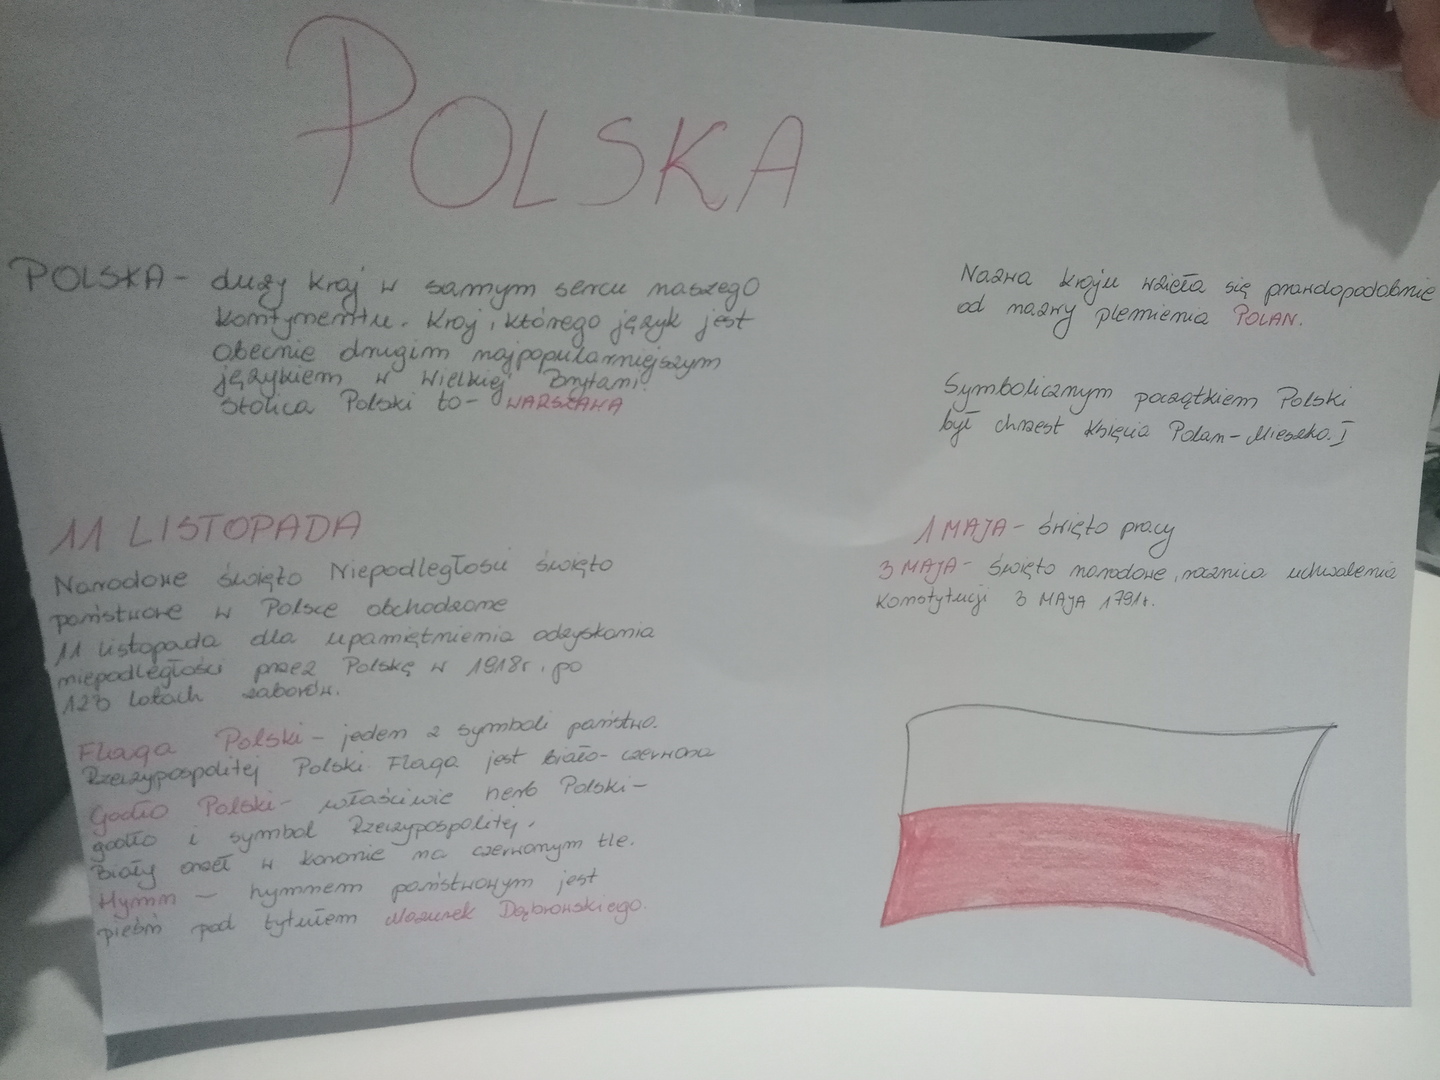 POLSKA
POLSKA - duży kraj w samym sercu naszego
kontynentu. Kraj, którego język jest
obecnie drugim najpopularniejszym
językiem w Wielkiej Brytanii.
Stolica Polski to - WARSZAWA
Nazwa kraju wzięła się prawdopodobnie
od nazwy plemienia POLAN.
Symbolicznym początkiem Polski
był chrzest księcia Polan - Mieszka I
11 LISTOPADA
Narodowe święto Niepodległości święto
państwowe w Polsce obchodzone
11 listopada dla upamiętnienia odzyskania
niepodległości przez Polskę w 1918r. po
123 latach zaborów.
1 MAJA - święto pracy
3 MAJA - święto narodowe, rocznica uchwalenia
Konstytucji 3 MAJA 1791r.
Flaga Polski - jeden z symboli państwa.
Rzeczypospolitej Polski. Flaga jest biało-czerwona
Godło Polski - właściwie herb Polski -
godło i symbol Rzeczypospolitej.
Biały orzeł w koronie na czerwonym tle.
Hymn - hymnem państwowym jest
pieśń pod tytułem Mazurek Dąbrowskiego.